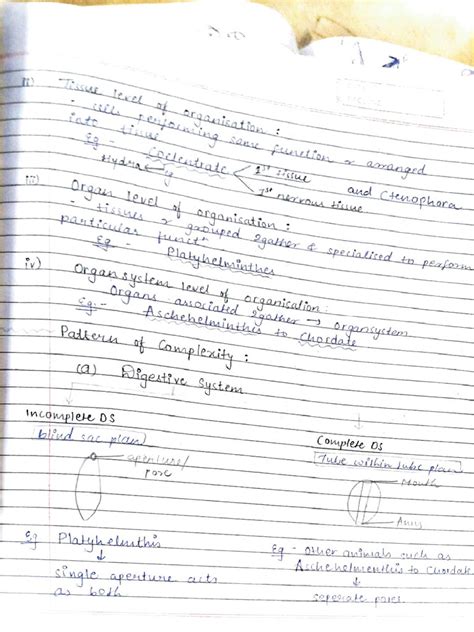 ii) Tissue level of organisation :
- cells performing same function r arranged
into tissue
Eg - Coelentrate 1st tissue and Ctenophora
Hydra 1st nervous tissue
iii) Organ level of organisation :
- tissues r grouped 2gather & specialised to perform
particular functn
Eg - Platyhelminthes
iv) Organ system level of organisation:
- Organs associated 2gather → organsystem
Eg:- Aschehelminthis to Chordate
Pattern of Complexity :
(a) Digestive System
Incomplete DS
blind sac plan)
aperture/
pore
Eg Platyhelmthis
↓
single aperture acts
as both
Complete DS
Tube within tube plan)
Mouth
Anus
Eg - other animals such as
Aschehelmenthis to Chordate
↓
seperate pores.